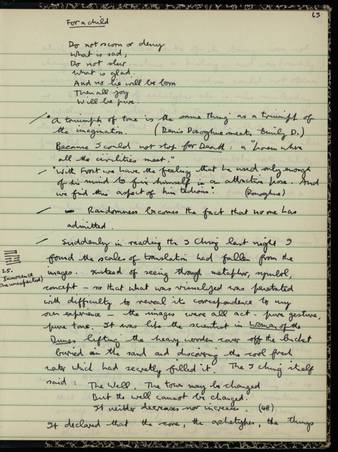 63
For a child
Do not scorn or deny
What is sad,
Do not slur
What is glad.
And no lie will be born
Then all joy
Will be pure.
"A triumph of tone is the same thing as a triumph of
the imagination. (Denis Donoghue meets Emily D.)
Because I could not stop for Death: a "poem where
all the civilities meet."
"With Frost we have the feeling that he used only enough
of his mind to fix himself in a attractive pose. And
we find this aspect of his tedious." (Donoghue)
— Randomness becomes the fact that no one has
admitted.
Suddenly in reading the I Ching last night I
found the scales of translation had fallen from the
images. Instead of seeing through metaphor, symbol,
concept – so that what was visualized was
with difficulty to reveal its correspondence to my
own experience – the images were all act. pure gesture,
pure tone. It was like the scientist in Woman of the
Dunes lifting the heavy wooden cover off the bucket
buried in the sand and discovering the cool fresh
water which had secretly filled it. The I Ching itself
said: The Well. The town may be changed
But the well cannot be changed.
It neither decreases nor increases. (48)
It declared that the core, the archetypes, the things
25.
Innocence
(the unexpected)